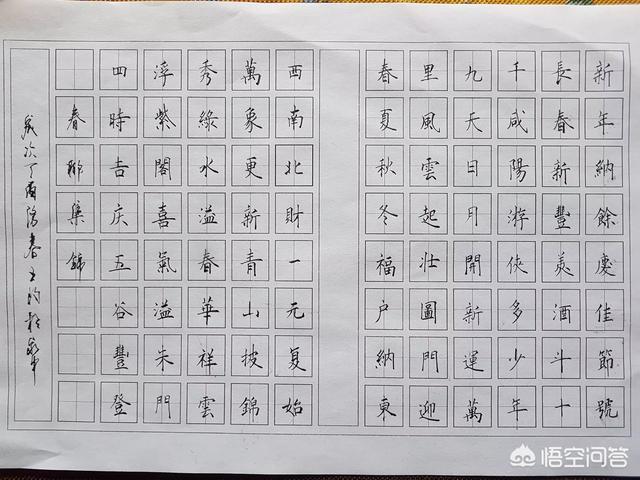 新年納餘慶佳節號
長春新豐美酒斗十
千咸陽游俠多少年
九天日月開新運萬
里風雲起壯圖門迎
春夏秋冬福户納東
西南北財一元复始
萬象更新青山披錦
秀綠水溢春華祥雲
浮紫閣喜氣溢朱門
四時吉庆五谷豐登
春聯集錦
歲次丁酉春
悟空问答